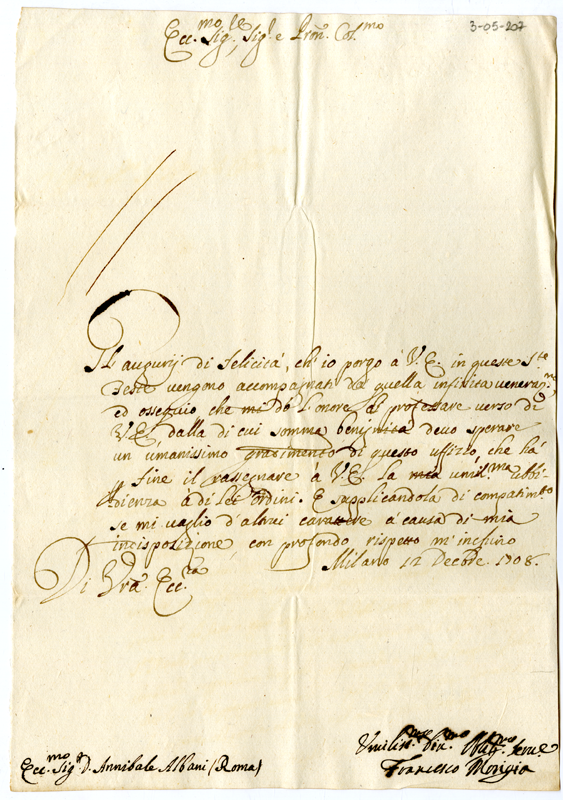 3-05-207
Ecc.mo Sig.re Sig.r e Pron. Col.mo
Gl'augurij di felicità, ch'io porgo à V.E. in queste S.te
Feste vengono accompagnati da quella infinita veneraz.ne
ed ossequio che mi dò l'onore di professare verso di
V.E., dalla di cui somma benignità devo sperare
un umanissimo gradimento di questo uffizio, che hà
fine il rassegnare à V.E. la mia umil.ma ubbi-
dienza à di Lei ordini. E supplicandola di compatim.to
se mi vaglio d'altrui carattere à causa di mia
indisposizione, con profondo rispetto m'inchino
Di Vra. Ecc.za
Milano 12 Decbre. 1708.
Umiliss.mo Div.mo Serv.e
Francesco Morigia
Ecc.mo Sig.r D. Annibale Albani (Roma)